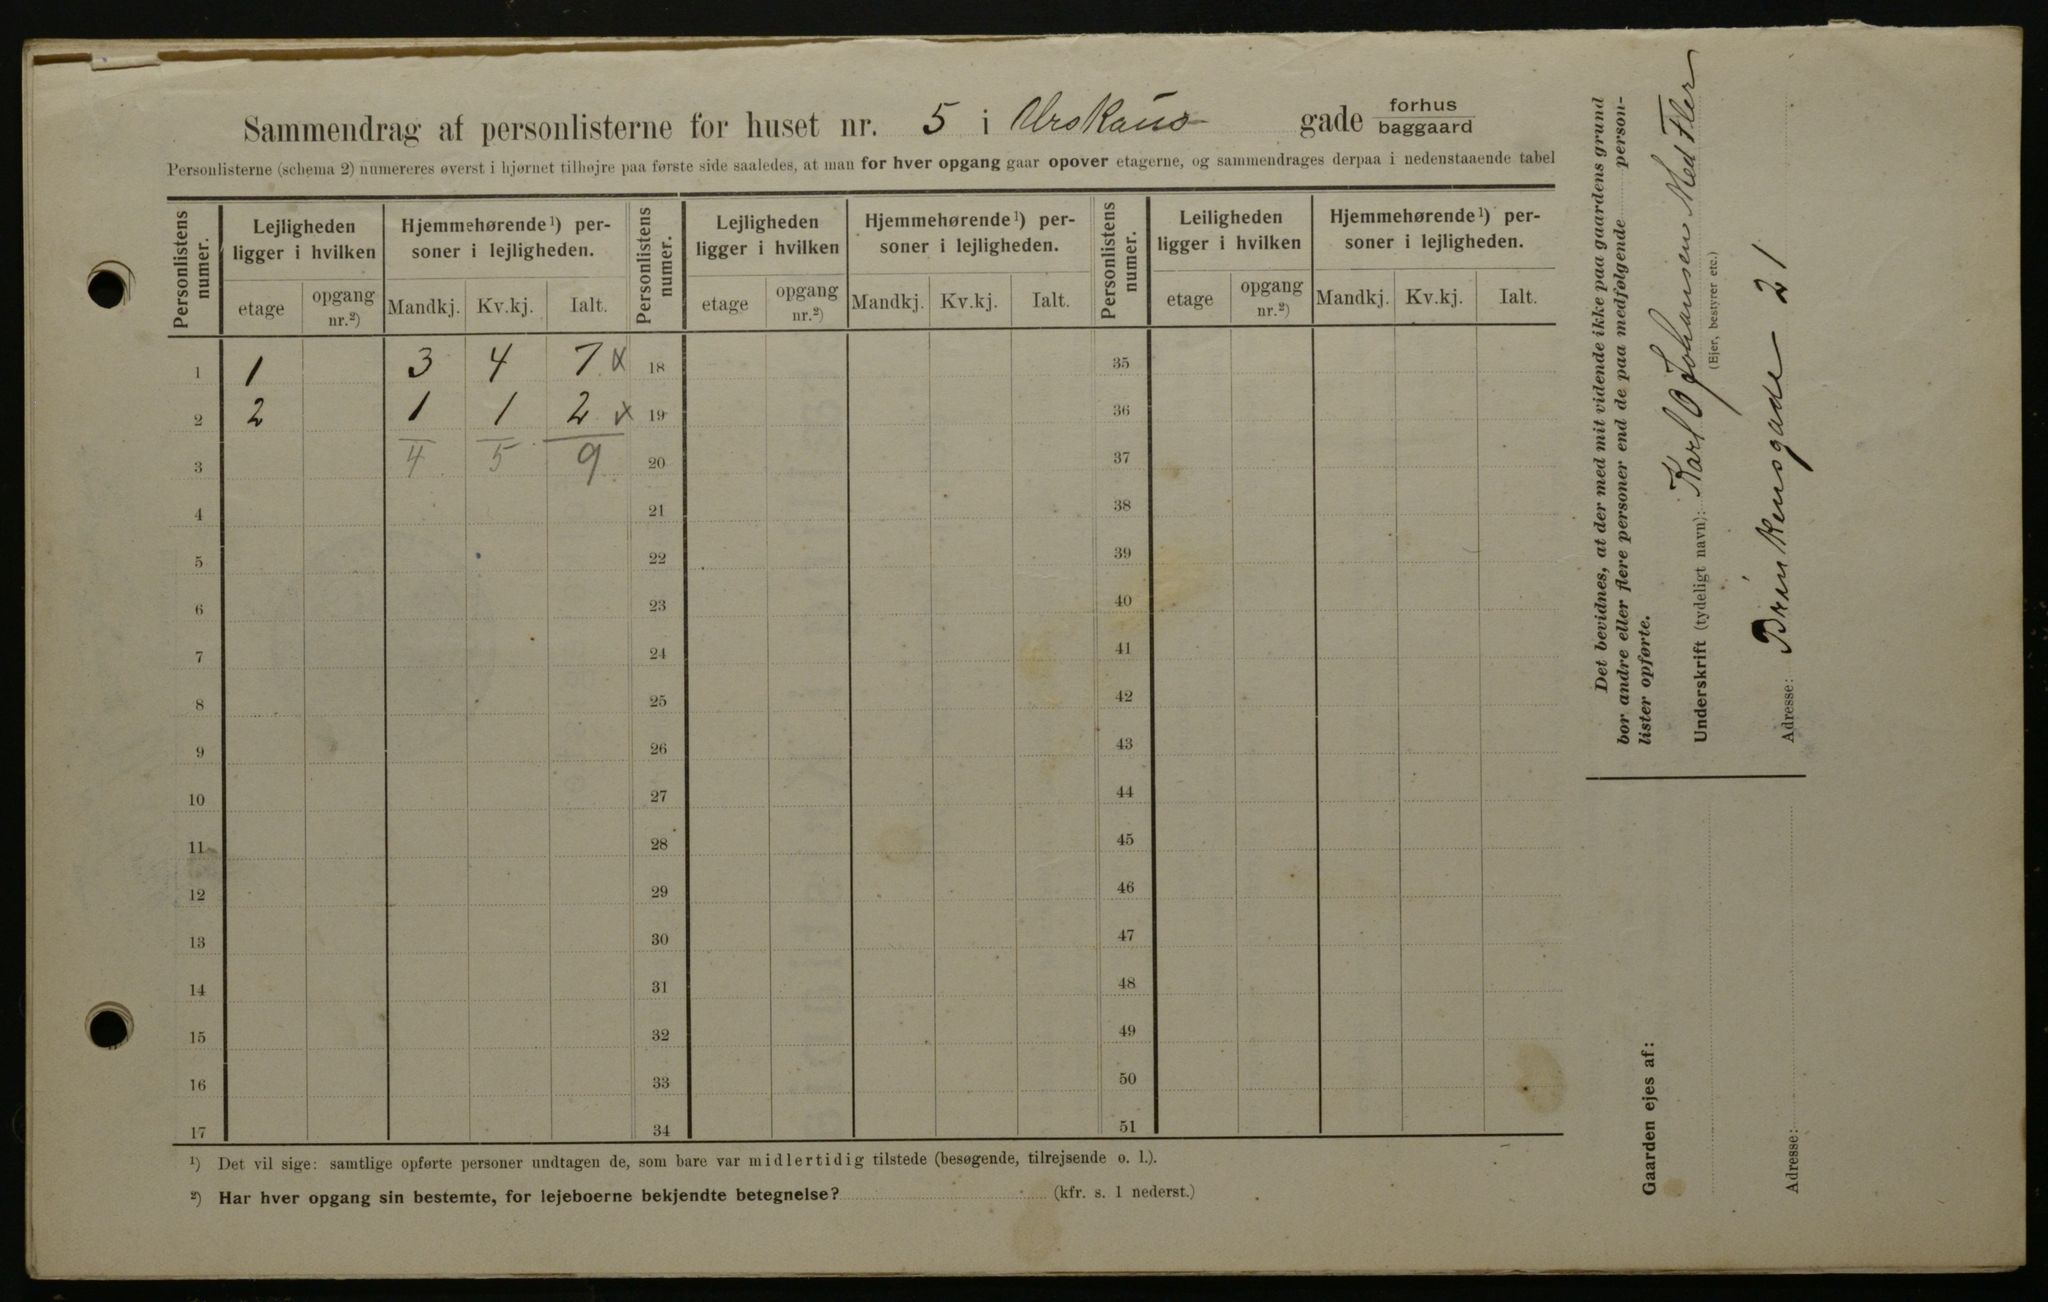 Sammendrag af personlisterne for huset nr. 5 i Urskaus gade forhus baggaard
Personlisterne (schema 2) numereres øverst i hjørnet tilhøjre paa første side saaledes, at man for hver opgang gaar opover etagerne, og sammendrages derpaa i nedenstaaende tabel
Personlistens numer. Lejligheden ligger i hvilken Hjemmehørende ¹) personer i lejligheden. Personlistens numer. Lejligheden ligger i hvilken Hjemmehørende ¹) personer i lejligheden. Personlistens numer. Leiligheden ligger i hvilken Hjemmehørende ¹) personer i lejligheden.
etage opgang nr.²) Mandkj. Kv.kj. Ialt. etage opgang nr.²) Mandkj. Kv.kj. Ialt. etage opgang nr.²) Mandkj. Kv.kj. Ialt.
1 1 3 4 7 x 18 35
2 2 1 1 2 x 19 36
3 4 5 9 20 37
4 21 38
5 22 39
6 23 40
7 24 41
8 25 42
9 26 43
10 27 44
11 28 45
12 29 46
13 30 47
14 31 48
15 32 49
16 33 50
17 34 51
¹) Det vil sige: samtlige opførte personer undtagen de, som bare var midlertidig tilstede (besøgende, tilrejsende o. l.).
²) Har hver opgang sin bestemte, for lejeboerne bekjendte betegnelse? (kfr. s. 1 nederst.)
Det bevidnes, at der med mit vidende ikke paa gaardens grund
bor andre eller flere personer end de paa medfølgende person-
lister opførte.
Underskrift (tydeligt navn): Karl O Johansen Med Fler
(Ejer, bestyrer etc.)
Adresse: Brinkensgade 21
Gaarden ejes af:
Adresse: